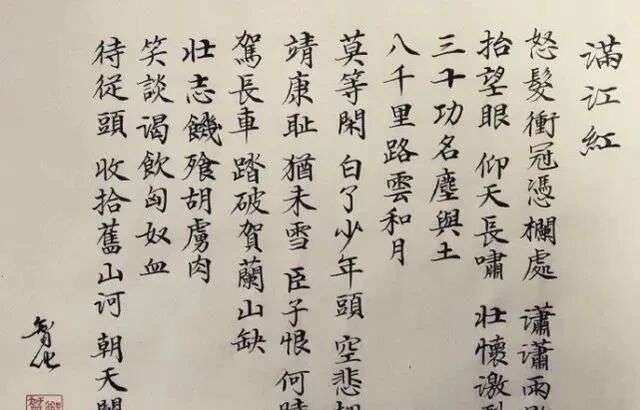 滿江紅
怒髮衝冠憑欄處 瀟瀟雨
抬望眼 仰天長嘯 壯懷激
三十功名塵與土
八千里路雲和月
莫等閑 白了少年頭 空悲
靖康恥 猶未雪 臣子恨 何
駕長車 踏破賀蘭山缺
壯志饑飱胡虜肉
笑談渴飲匈奴血
待從頭 收拾舊山河 朝天